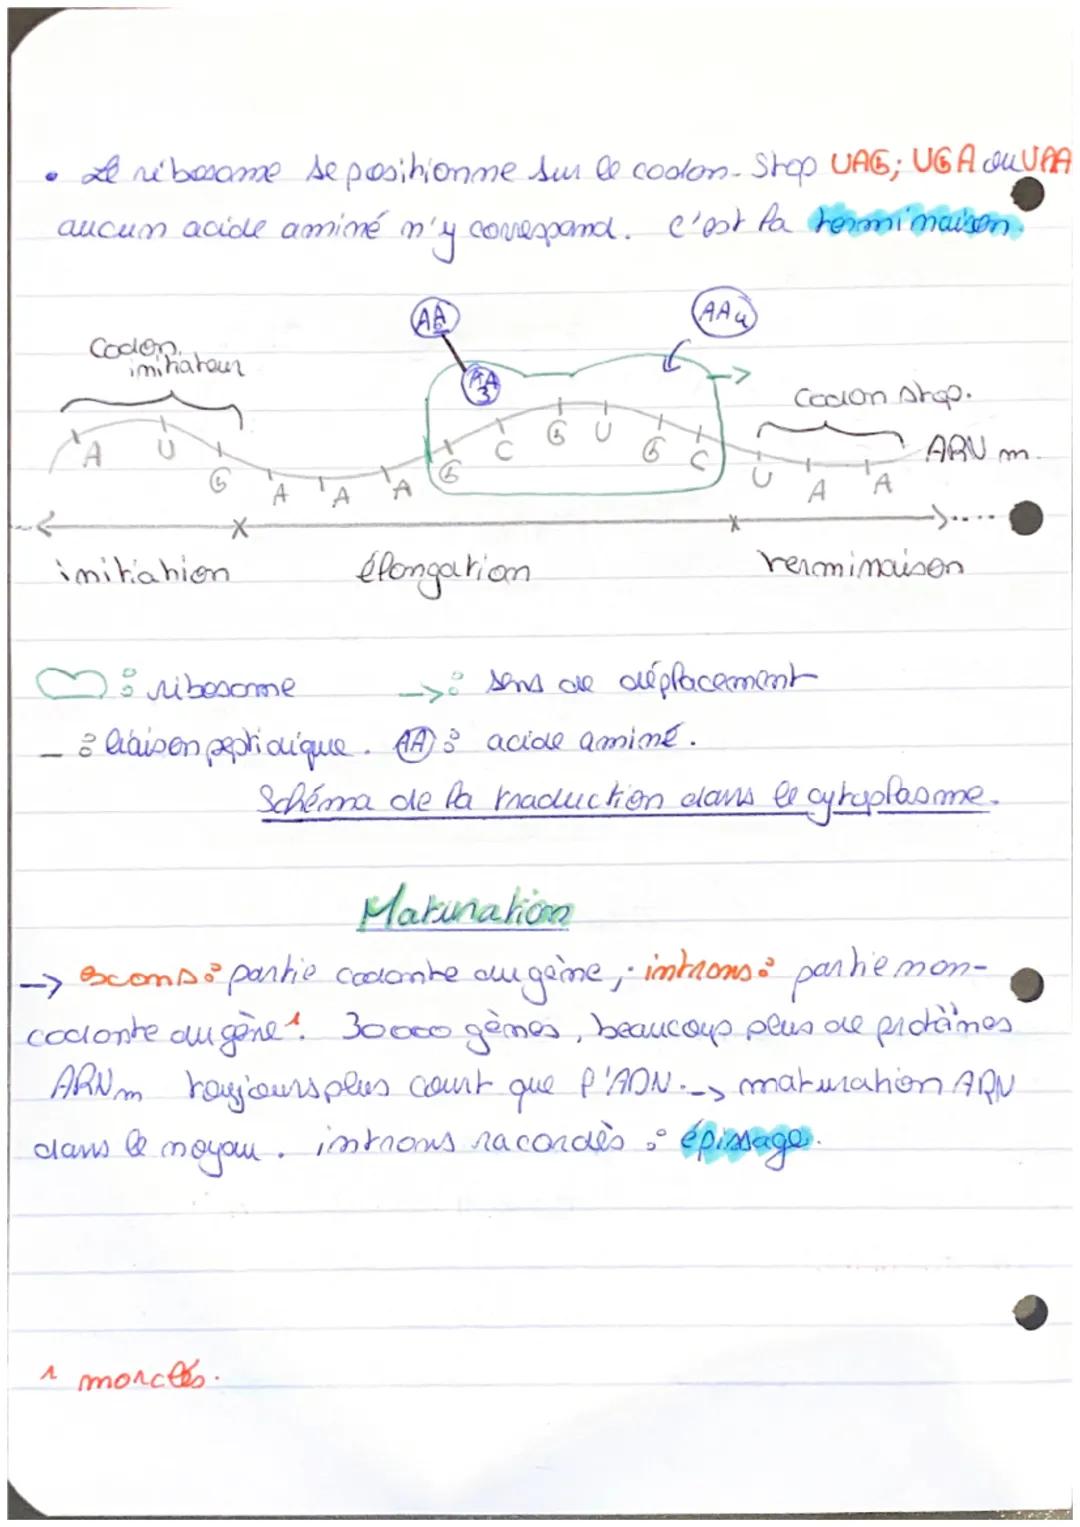 • Le ribosome se positionne sur le codon-Stop UAG; UGA ou UAA
aucun acide aminé n'y correspond. c'est la terminaison.
Codon
initiateur
AA
AA
3
AA4
Codon stop.
ARN m.
A U G A A A G C G U G C U A A
initiation élongation terminaison
: ribosome → : sens de déplacement
_ : liaison peptidique. AA : acide aminé.
Schéma de la traduction dans le cytoplasme.
Maturation
→ exons : partie codante du gène ; introns : partie non-
codante du gène¹. 30000 gènes, beaucoup plus de protéines
ARNm toujours plus court que l'ADN. → maturation ARN
dans le noyau. introns racordés : épissage.
1 morcelés.